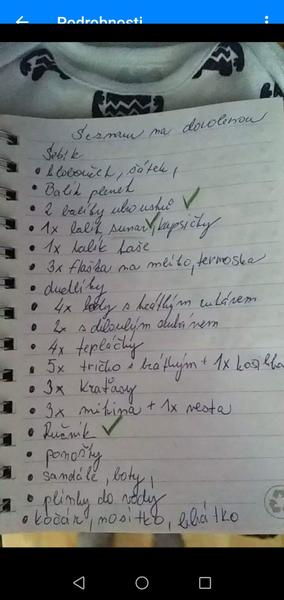 Podrobnosti
Seznam na dovolenou
Šebík
• klobouček, šátek,
• Balík plenek
• 2 balíky ubrousků
• 1x balík sunar, kapsičky
• 1x balík kaše
• 3x flaška na mléko, termoska
• dudlíky
• 4x body s krátkým rukávem
• 2x s dlouhým rukávem
• 4x tepláčky
• 5x tričko s krátkým + 1x košile
• 3x kraťasy
• 3x mikina + 1x vesta
• Ručník
• ponožky
• sandále, boty,
• plínky do vody
• kočár, nosítko,